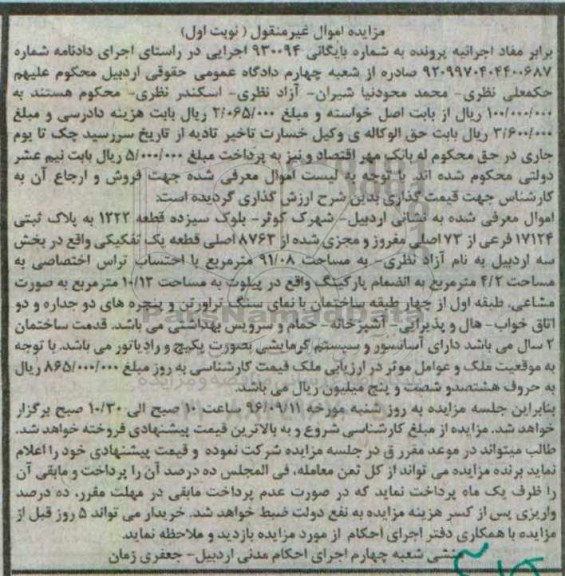 مزایده اموال غیرمنقول ( نوبت اول)
برابر مفاد اجرائیه پرونده به شماره بایگانی ۹۳۰۰۹۴ اجرایی در راستای اجرای دادنامه شماره
۹۲۰۹۹۷۰۴۰۴۴۰۰۶۸۷ صادره از شعبه چهارم دادگاه عمومی حقوقی اردبیل محکوم علیهم
حکمعلی نظری- محمد محودنیا شیران- آزاد نظری- اسکندر نظری- محکوم هستند به
۱۰۰/۰۰۰/۰۰۰ ریال از بابت اصل خواسته و مبلغ ۲/۰۶۵/۰۰۰ ریال بابت هزینه دادرسی و مبلغ
۳/۶۰۰/۰۰۰ بابت حق الوکاله ی وکیل خسارت تاخیر تادیه از تاریخ سررسید چک تا یوم
جاری در حق محکوم له بانک مهر اقتصاد و نیز به پرداخت مبلغ ۵/۰۰۰/۰۰۰ ریال بابت نیم عشر
دولتی محکوم شده اند با توجه به لیست اموال معرفی شده جهت فروش و ارجاع آن به
کارشناس جهت قیمت گذاری بدین شرح ارزش گذاری گردیده است:
اموال معرفی شده به نشانی اردبیل- شهرک کوثر- بلوک سیزده قطعه ۱۲۲۲ به پلاک ثبتی
۱۷۱۲۴ فرعی از ۷۳ اصلی مفروز و مجزی شده از ۸۷۶۳ اصلی قطعه یک تفکیکی واقع در بخش
سه اردبیل به نام آزاد نظری- به مساحت ۹۱/۰۸ مترمربع با احتساب تراس اختصاصی به
مساحت ۴/۲ مترمربع به انضمام پارکینگ واقع در پیلوت به مساحت ۱۰/۱۲ مترمربع به صورت
مشاعی. طبقه اول از چهار طبقه ساختمان با نمای سنگ تراورتن و پنجره های دو جداره و دو
اتاق خواب- هال و پذیرایی- آشپزخانه- حمام و سرویس بهداشتی می باشد. قدمت ساختمان
۲ سال می باشد دارای آسانسور و سیستم گرمایشی بصورت پکیج و رادیاتور می باشد. با توجه
به موقعیت ملک و عوامل موثر در ارزیابی ملک قیمت کارشناسی به روز مبلغ ۸۶۵/۰۰۰/۰۰۰ ریال
به حروف هشتصدو شصت و پنج میلیون ریال می باشد.
بنابراین جلسه مزایده به روز شنبه مورخه ۹۶/۰۹/۱۱ ساعت ۱۰ صبح الی ۱۰/۳۰ صبح برگزار
خواهد شد. مزایده از مبلغ کارشناسی شروع و به بالاترین قیمت پیشنهادی فروخته خواهد شد.
طالب میتواند در موعد مقرر ق در جلسه مزایده شرکت نموده و قیمت پیشنهادی خود را اعلام
نماید برنده مزایده می تواند از کل ثمن معامله، فی المجلس ده درصد آن را پرداخت و مابقی آن
را ظرف یک ماه پرداخت نماید که در صورت عدم پرداخت مابقی در مهلت مقرر، ده درصد
واریزی پس از کسر هزینه مزایده به نفع دولت ضبط خواهد شد. خریدار می تواند ۵ روز قبل از
مزایده با همکاری دفتر اجرای احکام از مورد مزایده بازدید و ملاحظه نماید.
منشی شعبه چهارم اجرای احکام مدنی اردبیل- جعفری زمان